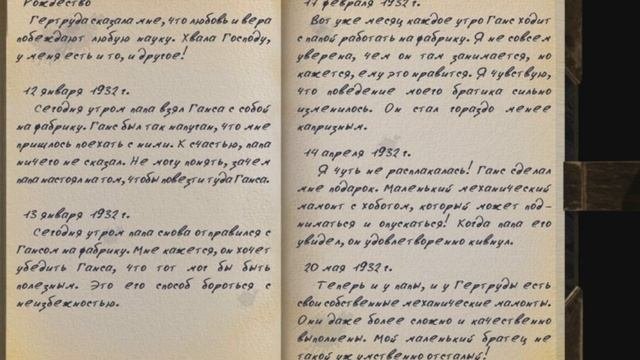 Рождество
Гертруда сказала мне, что любовь и вера
побеждают любую науку. Хвала Господу,
у меня есть и то, и другое!
12 января 1932 г.
Сегодня утром папа взял Ганса с собой
на фабрику. Ганс был так напуган, что мне
пришлось поехать с ними. К счастью, папа
ничего не сказал. Не могу понять, зачем
папа настоял на том, чтобы повезти туда Ганса.
13 января 1932 г.
Сегодня утром папа снова отправился с
Гансом на фабрику. Мне кажется, он хочет
убедить Ганса, что тот мог бы быть
полезным. Это его способ бороться с
неизбежностью.
11 февраля 1932 г.
Вот уже месяц каждое утро Ганс ходит
с папой работать на фабрику. Я не совсем
уверена, чем он там занимается, но
кажется, ему это нравится. Я чувствую,
что поведение моего братика сильно
изменилось. Он стал гораздо менее
капризным.
14 апреля 1932 г.
Я чуть не расплакалась! Ганс сделал
мне подарок. Маленький механический
мамонт с хоботом, который может под-
ниматься и опускаться! Когда папа его
увидел, он удовлетворенно кивнул.
20 мая 1932 г.
Теперь и у папы, и у Гертруды есть
свои собственные механические мамонты.
Они даже более сложно и качественно
выполнены. Мой маленький братец не
такой уж умственно отсталый!